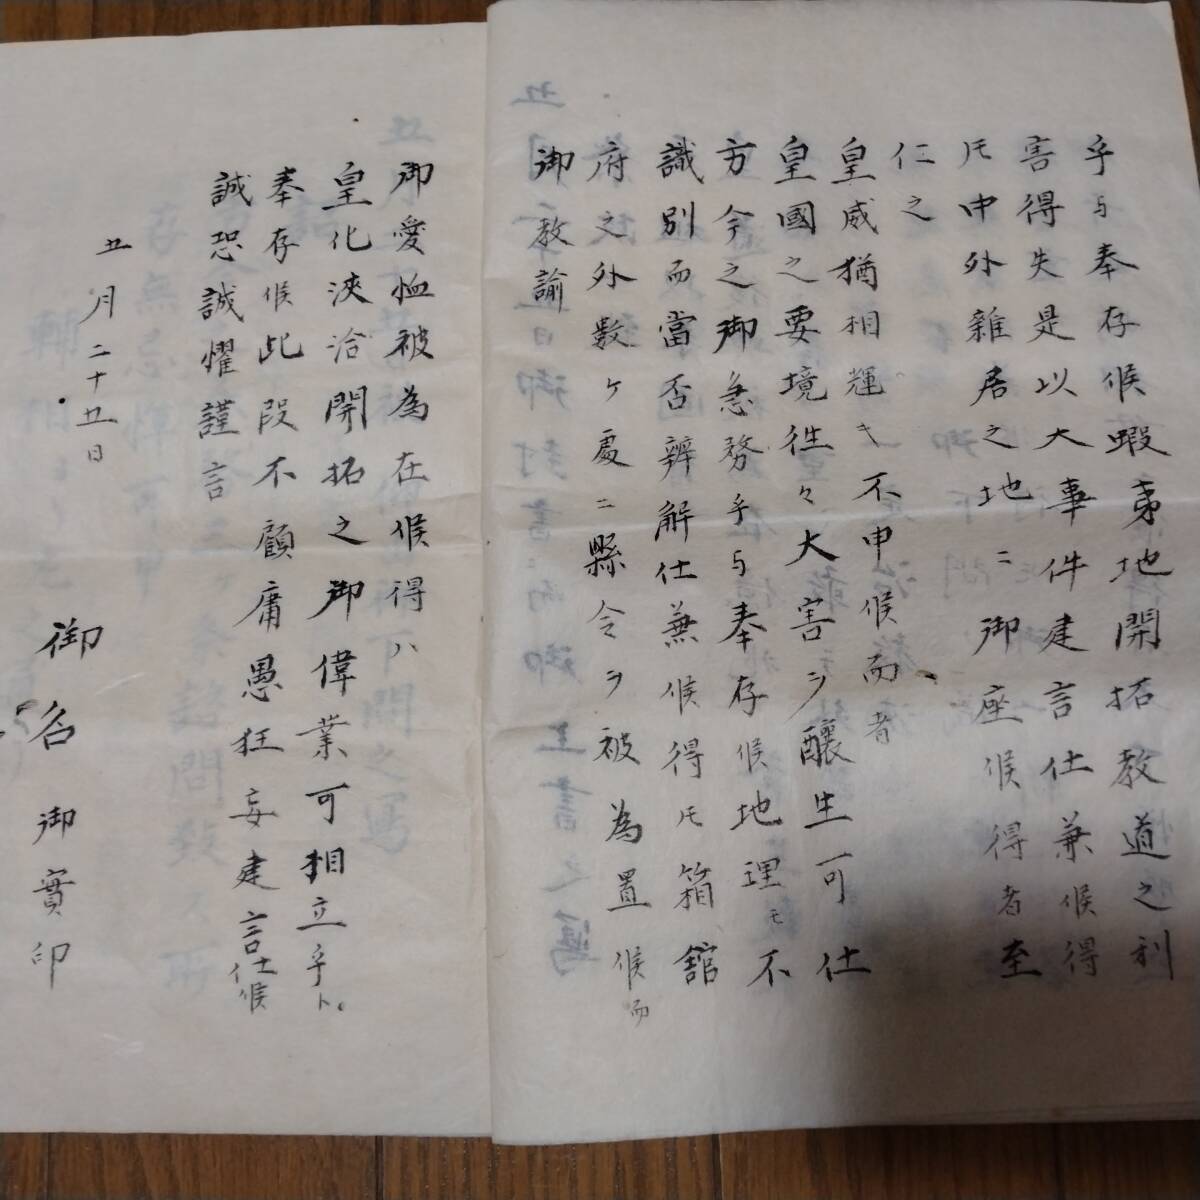 乎与奉存候蝦夷地開拓教道之利
害得失是以大事件建言仕兼候得
㐧中外雑居之地ニ御座候得者至
仁之
皇威猶相輝キ不申候而者
皇國之要境往々大害ヲ釀生可仕
方今之御急務乎与奉存候地理モ不
識別而當否辨解仕兼候得𪜈箱舘
府之外數ヶ處ニ縣令ヲ被為置候而
御教諭
御愛恤被為在候得ハ
皇化浹洽開拓之御偉業可相立乎ト
奉存候此段不顧庸愚狂妄建言仕候
誠恐誠懼謹言
五月二十五日
御名御實印